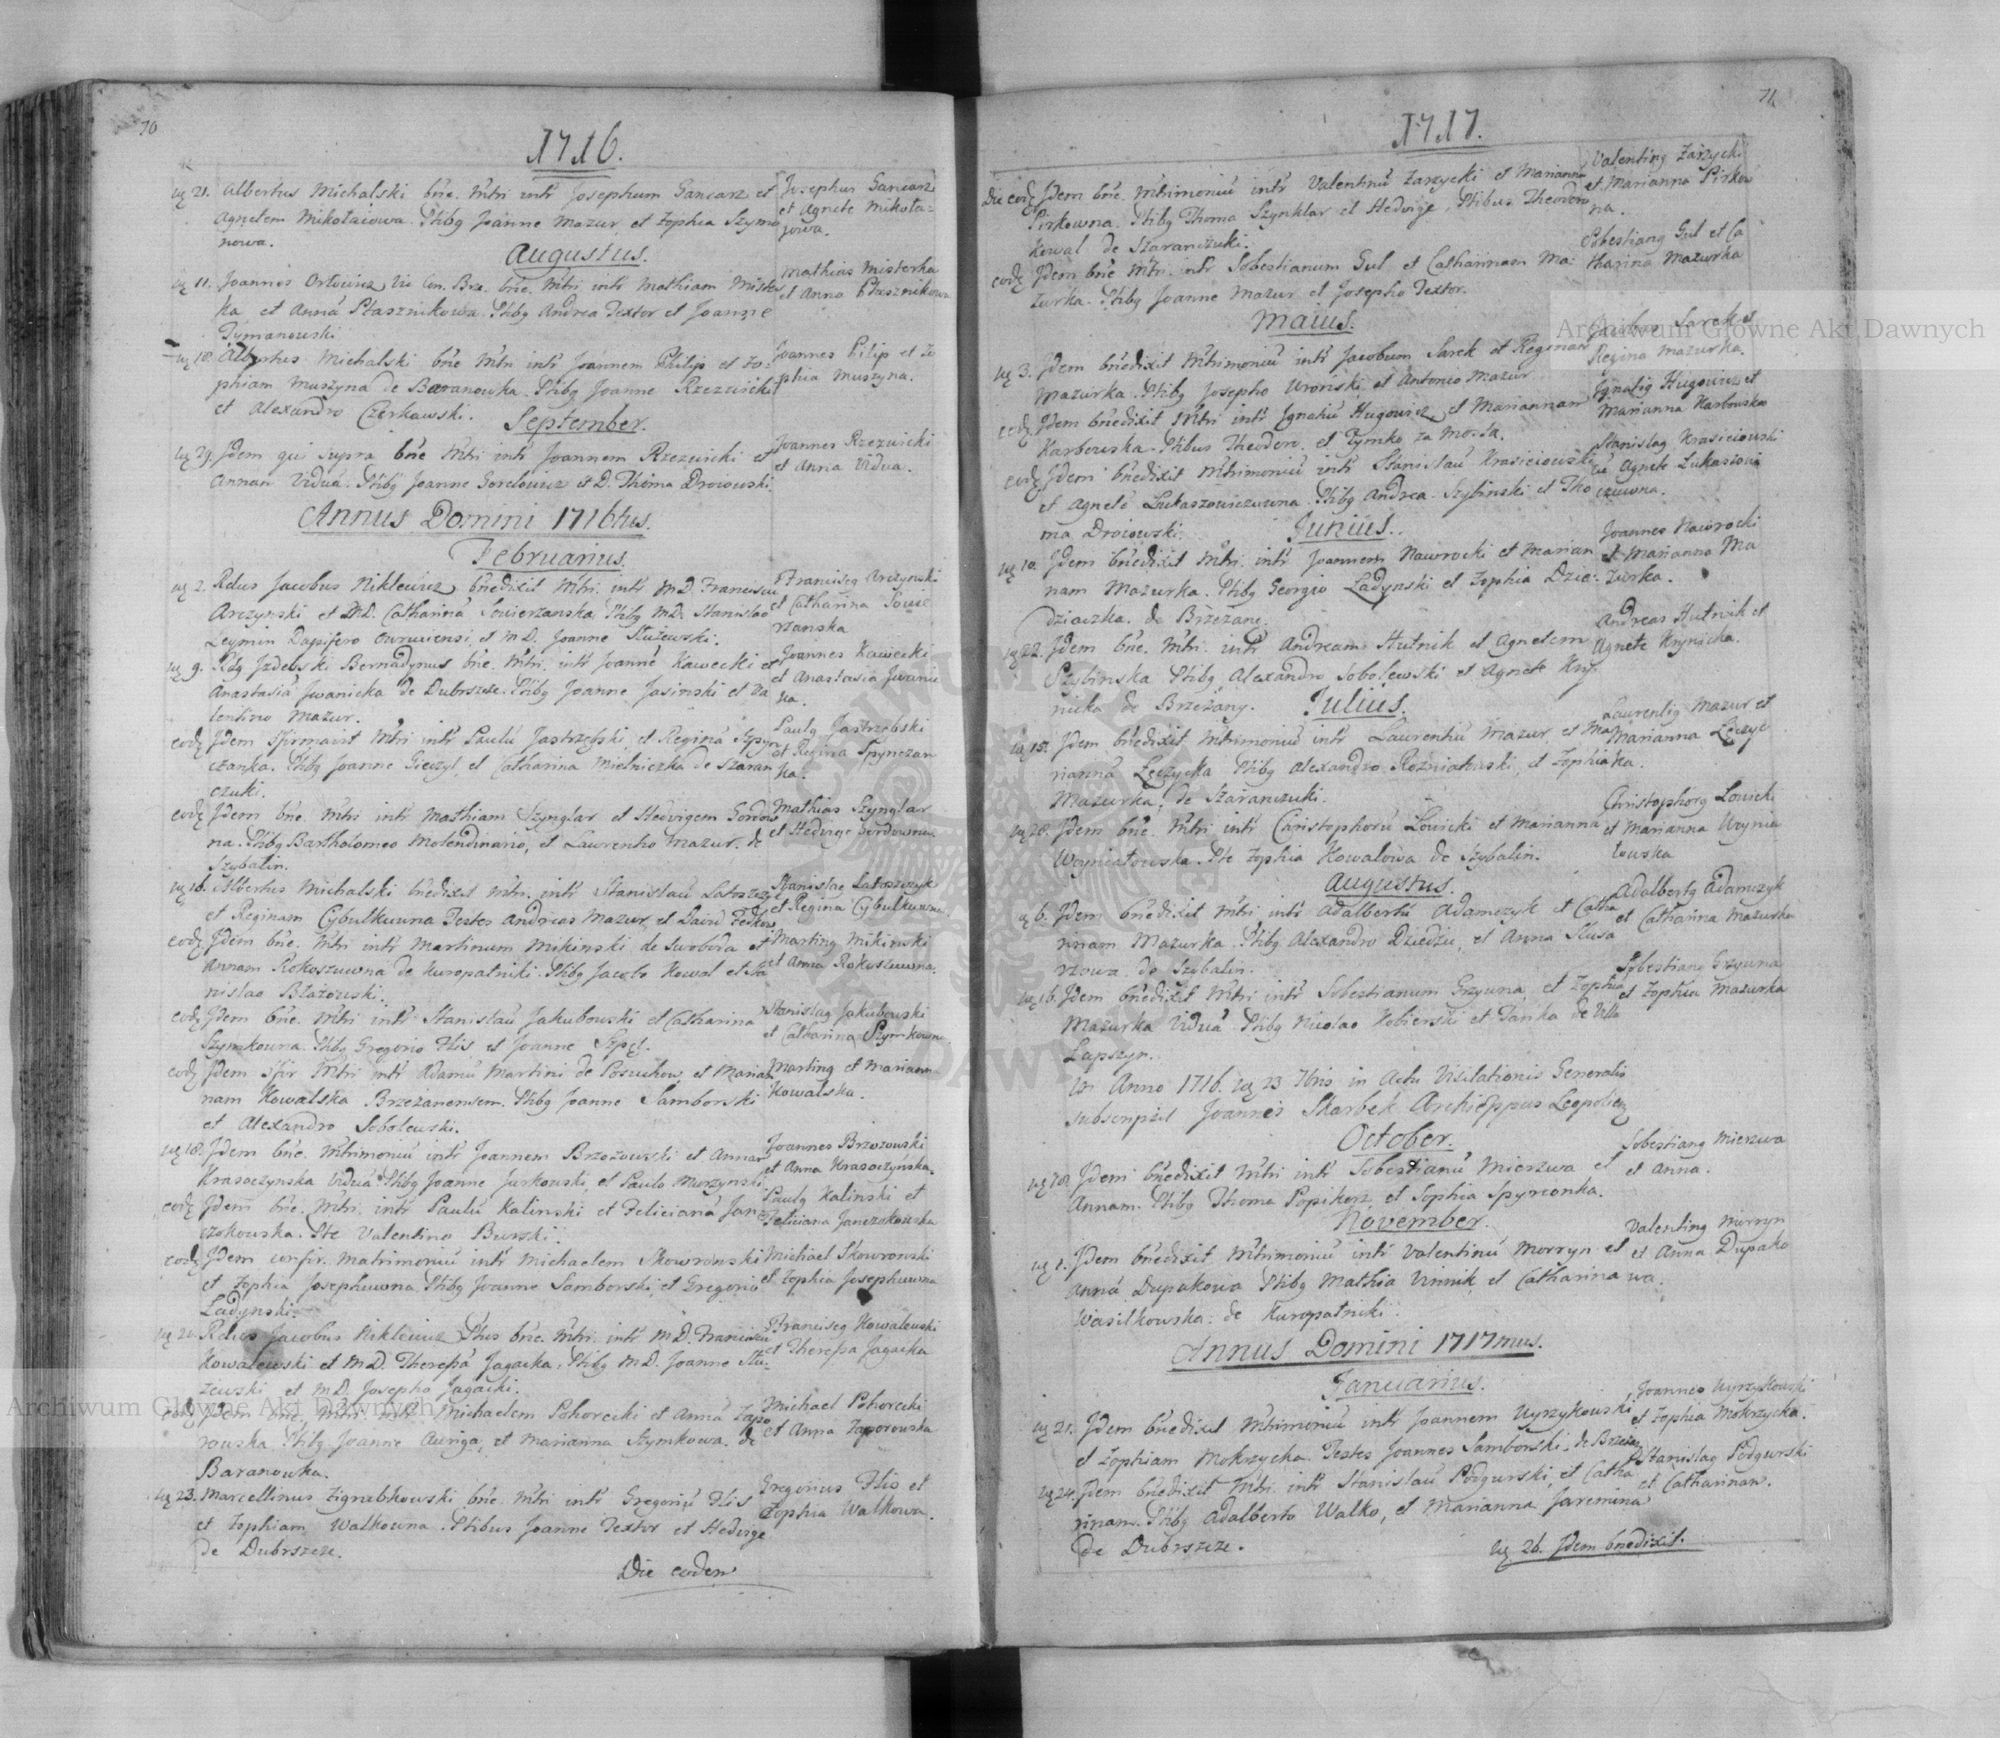 70
1716.
21. Albertus Michalski bñe. Mtri intr Josephum Gancarz et
Agnetem Mikołaiowa. Ptibg Joanne Mazur, et Zophia Szymo
nowa.
Josephus Gancarz
et Agnete Mikoła-
jowa.
Augustus.
11. Joannes Ortowicz bñe. Mtri intr Mathiam Mister
ka et Anná Ptasznikowa. Ptibg Andrea Textor et Joanne
Tymanowski
Mathias Misterka
et Anna Ptasznikowa
18. Albertus Michalski bñe Mtri intr Joannem Philip et Zo-
phiam Muszyna de Baranowka. Ptibg Joanne Rzezwicki
et Alexandro Czerkawski.
Joannes Pilip et Zo
phia Muszyna.
September.
29. Jdem qui supra bñe Mtri intr Joannem Rzezwicki et
Annam Viduá. Ptibg Joanne Gorelowicz et D. Thoma Drozowski.
Joannes Rzezwicki
et Anna Vidua.
Annus Domini 1716tus.
Februarius.
2. Rdus Jacobus Niklewicz bñedixit Mtri. intr MD. Franciscu
Arczynski et MD. Catharina Swierzanska Ptibg MD. Stanislao
Leymin Dapifero Owruciensi, et MD. Joanne Służewski.
Francisg Arczynski
et Catharina Swie
rzanska
9. Rdg Jzdebski Bernadynus bñe. Mtri. intr Joanné Kawecki et
Anastasiá Jwanicka de Dubrszcze. Ptibg Joanne Jasinski et Va
lentino Mazur.
Joannes Kawecki
et Anastasia Jwanic
ka.
eodg Jdem Mtri intr Paulú Jastrzębski, et Reginá Szpyn
czanka. Ptibg Joanne Gieczyl, et Catharina Mielniczka de Szaran
czuki.
Paulg Jastrzębski
et Regina Spynczan
ka.
eodg Jdem bñe. Mtri intr Mathiam Szynglar et Hedvigem Gordow
na. Ptibg Bartholomeo Molendinario, et Laurentio Mazur. de
Szybalin.
Mathias Szynglar
et Hedvige Gordowna.
16. Albertus Michalski bñedixit Mtri. intr Stanislaú Latoszczyk
et Reginam Cybulkuwna Testes Andreas Mazur, et
Stanislag Latoszczyk
et Regina Cybulkuwna.
eodg Jdem bñe. Mtri intr Martinum Mikinski de Swoboda et
Annam Rokoszuwna de Kuropatniki. Ptibg Jacobo Kowal et Sta
nislao Błazowski.
Marting Mikinski
et Anna Rokoszuwna.
eodg Jdem bñe. Mtri intr Stanislaú Jakubowski et Catharina
Szymkowna. Ptibg Gregorio Flis, et Joanne
Stanislag Jakubowski
et Catharina Szymkowna
eodg Jdem Mtri intr Adamú Martini de Posuchow, et Marian
nam Kowalska Brzezanensem. Ptibg Joanne Samborski
et Alexandro Sobolewski.
Marting et Marianna
Kowalska.
18. Jdem bñe. Mtrimoniú intr Joannem Brzozowski et Annam
Krasoczynska Viduá Ptibg Joanne Jurkowski, et Paulo Murzynski
Joannes Brzozowski
et Anna Krasoczyńska.
eodg Jdem bñe. Mtri. intr Paulú Kalinski et Felicianá Jan-
czokowska. Pte Valentino Burski.
Paulg Kalinski et
Feliciana Janczokowska
eodg Jdem confir. Matrimoniú intr Michaelem Skowronski
et Zophia Josephuwna. Ptibg Joanne Samborski, et Gregorio
Ladynski.
Michael Skowronski
et Zophia Josephuwna
Rdus Jacobus Niklewicz bñe. Mtri. intr M.D. Franciscu
Kowalewski et M.D. Theresiá Jagacka. Ptibg M.D. Joanne Słu-
żewski et M.D. Josepho Jagacki.
Francisg Kowalewski
et Theresia Jagacka
eodg Jdem bñe. Mtri intr Michaelem Pohorecki et Anná Zapo
rowska Ptibg Joanne Auriga, et Marianna Szymkowa. de
Baranowka.
Michael Pohorecki
et Anna Zaporowska
23. Marcellinus Zignabkowski bñe. Mtri intr Gregoriú Flis
et Zophiam Walkowna. Ptibus Joanne Textor et Hedvige
de Dubrszcze.
Gregorius Flis et
Zophia Walkowa.
Die eodem
71
1717.
Die eodg Jdem bñe. Mtrimoniú intr Valentinú Zarzycki et Marianna
Pirkowna. Ptibg Thoma Szynklar et Hedvige. Ptibus Theodoro
Kowal de Szaranczuki.
Valenting Zarzycki
et Marianna Pirkow
na.
eodg Jdem bñe Mtri. intr Sobestianum Gul et Catharinam Ma-
zurka. Ptibg Joanne Mazur et Josepho Textor.
Sobestiang Gul et Ca
tharina Mazurka
Maius.
3. Jdem bñedixit Mtrimoniú intr Jacobum Sarek et Reginam
Mazurka. Ptibg Josepho Wroński, et Antonio Mazur
Jacobus Sarek et
Regina Mazurka.
eodg Jdem bñedixit Mtri intr Jgnatiú Hugowicz et Mariannam
Karbowska. Ptibus Theodoro. et Tymko za Mosta.
Jgnatig Hugowicz et
Marianna Karbowska
eodg Jdem bñedixit Mtrimoniú intr Stanislaú Krasiciowski
et Agneté Lukaszowiczuwna. Ptibg Andrea Szybinski et Tho
ma Drozowski.
Stanislag Krasiciowski
cú Agnete Lukaszowi
czuwna.
Junius.
10. Jdem bñedixit Mtri. intr Joannem Nawrocki et Marian
nam Mazurka. Ptibg Georgio Ladynski et Zophia Dzie-
dziaczka. de Brzeżany.
Joannes Nawrocki
et Marianna Ma
zurka.
22. Jdem bñe. Mtri. intr Andream Hutnik et Agnetem
Szybinska Ptibg. Alexandro Sobolewski et Agnete Kry-
nicka de Brzeżany.
Andreas Hutnik et
Agnete Krynicka.
Julius.
15. Jdem bñedixit Mtrimoniú intr Laurentiú Mazur, et Ma
rianná Łęczycka. Ptibg Alexandro Rozniatowski, et Zophia
Mazurka, de Szaranczuki.
Laurentig Mazur et
Marianna Łęczyc
ka.
Jdem bñedixit. Mtri. intr Christophorú Łowicki et Marianna
Woyniatowska. Pte Zophia Kowalowa de Szybalin.
Christophorg Łowicki
et Marianna Woynia
towska
Augustus.
6. Jdem bñedixit Mtri. intr Adalbertú Adamczyk et Catha
rinam Mazurka. Ptibg Alexandro Dziedzic, et Anna Slusa
rzowa de Szybalin.
Adalbertg Adamczyk
et Catharina Mazurka
16. Jdem bñedixit Mtri intr Sobestianum Grzywna, et Zophia
Mazurka Viduá. Ptibg Nicolao Kobierski et Tańka de Villa
Lapszyn.
Sobestiang Grzywna
et Zophia Mazurka
in Anno 1716. 23 7bris in Actu Visitationis Generalis
subscripsit Joannes Skarbek Archieppus Leopolien
October.
Jdem bñedixit Mtri intr Sobestianú Mierzwa et
Annam. Ptibg Thoma Popikorz et Sophia Spyrconka.
Sobestiang Mierzwa
et Anna.
November.
1. Jdem bñedixit Mtrimoniú intr Valentinú Morryn et
Anná Dupakowa Ptibg Mathia Vinnik, et Catharina
Wasilkowska. de Kuropatniki.
Valenting Morryn
et Anna Dupako
wa.
Annus Domini 1717mus.
Januarius.
21. Jdem bñedixit Mtrimoniú intr Joannem Wyrzykowski
et Zophiam Mokrzycka. Testes Joannes Samborski, de Brzeżan
Joannes Wyrzykowski
et Zophia Mokrzycka.
24. Jdem bñedixit Mtri. intr Stanislaú Podgurski, et Catha
rinam. Ptibg Adalberto Walko, et Marianna Jaremina
de Dubrszcze.
Stanislag Podgurski
et Catharinam.
26. Jdem bñedixit.
Archiwum Główne Akt Dawnych
Archiwum Główne Akt Dawnych